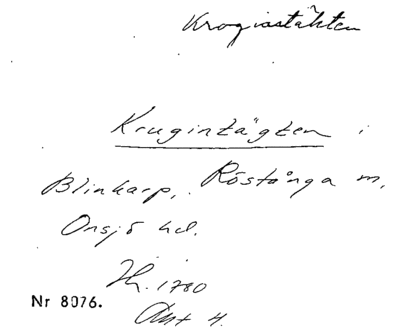 Krogiastäkten
Krugintägten i
Blinkarp, Röstånga sn,
Onsjö hd.
Th. 1780
Akt 4.
Nr 8076.